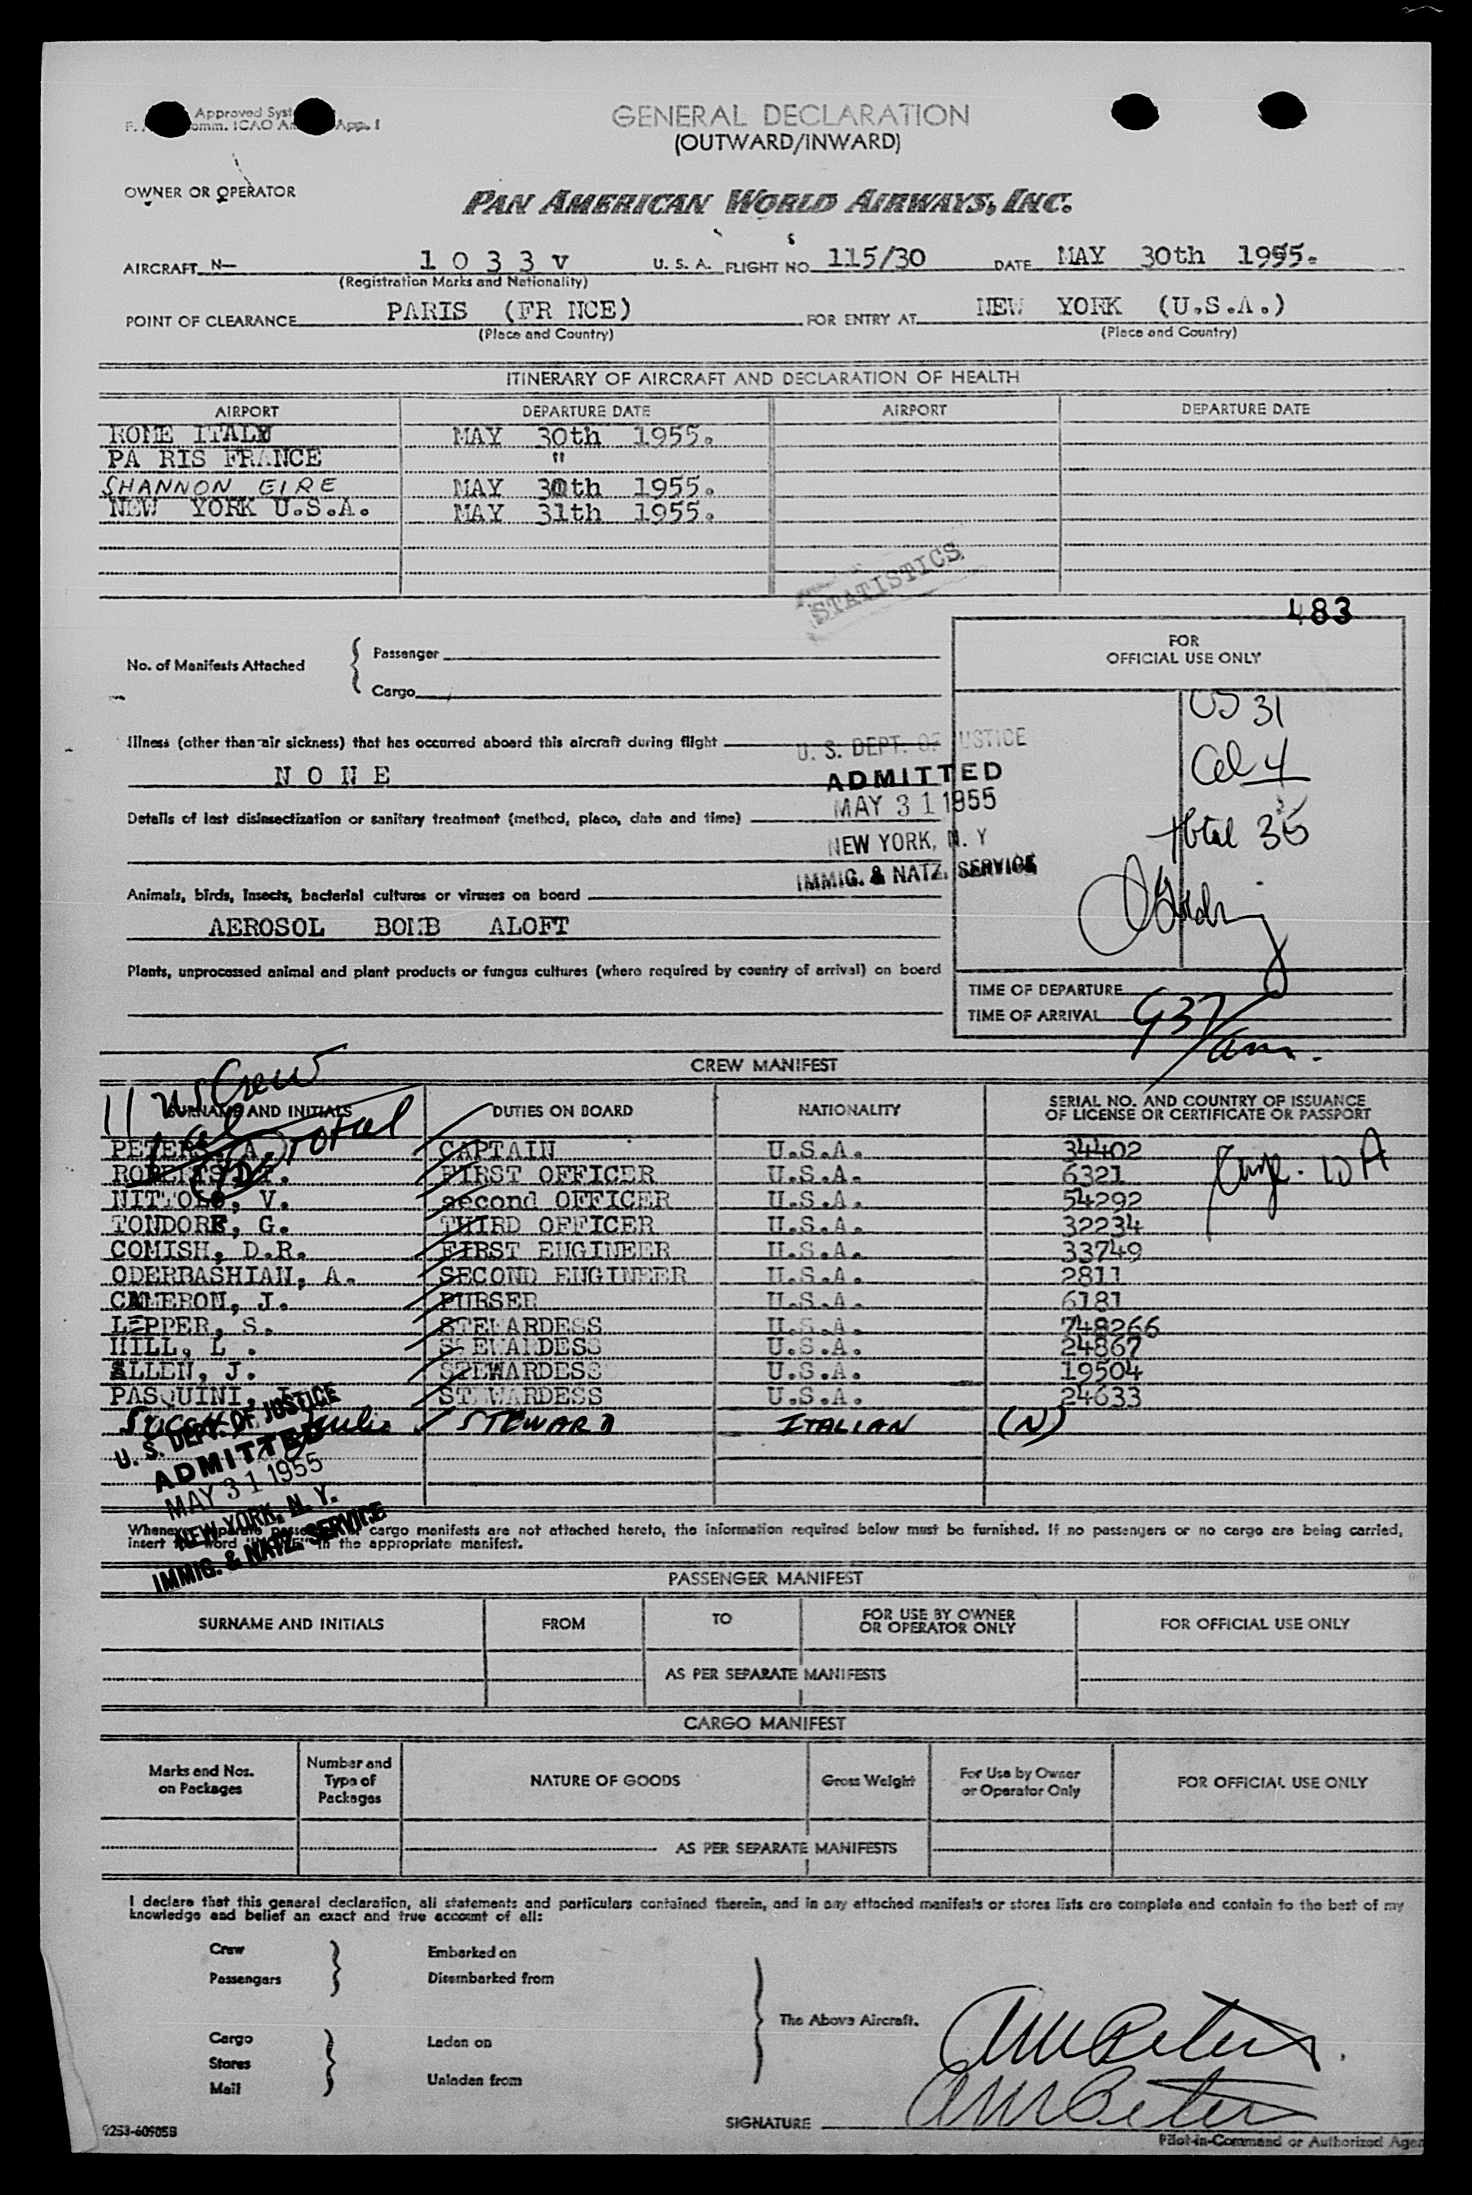 Approved Syst
omm. ICAO An App. 1
GENERAL DECLARATION
(OUTWARD/INWARD)
OWNER OR OPERATOR
PAN AMERICAN WORLD AIRWAYS, INC.
AIRCRAFT N— 1 0 3 3 v U. S. A. FLIGHT NO 115/30 DATE MAY 30th 1955.
(Registration Marks and Nationality)
POINT OF CLEARANCE PARIS (FR NCE) FOR ENTRY AT NEW YORK (U.S.A.)
(Place and Country) (Place and Country)
ITINERARY OF AIRCRAFT AND DECLARATION OF HEALTH
AIRPORT DEPARTURE DATE AIRPORT DEPARTURE DATE
ROME ITALY MAY 30th 1955.
PA RIS FRANCE "
SHANNON EIRE MAY 30th 1955.
NEW YORK U.S.A. MAY 31th 1955.
STATISTICS
483
FOR
OFFICIAL USE ONLY
No. of Manifests Attached { Passenger
Cargo
US 31
Illness (other than air sickness) that has occurred aboard this aircraft during flight
N O N E
U. S. DEPT. OF JUSTICE
ADMITTED
MAY 31 1955
NEW YORK, N. Y
IMMIG. & NATZ. SERVICE
Total 35
Details of last disinsectization or sanitary treatment (method, place, date and time)
Animals, birds, insects, bacterial cultures or viruses on board
AEROSOL BOMB ALOFT
Plants, unprocessed animal and plant products or fungus cultures (where required by country of arrival) on board
TIME OF DEPARTURE
TIME OF ARRIVAL 937 am.
CREW MANIFEST
11 US Crew
total
SURNAME AND INITIALS DUTIES ON BOARD NATIONALITY SERIAL NO. AND COUNTRY OF ISSUANCE
OF LICENSE OR CERTIFICATE OR PASSPORT
PETERS, A. CAPTAIN U.S.A. 34402
ROBERTS, FIRST OFFICER U.S.A. 6321
NITTOLO, V. second OFFICER U.S.A. 54292
TONDORE, G. THIRD OFFICER U.S.A. 32234
COMISH, D.R. FIRST ENGINEER U.S.A. 33749
ODERBASHIAN, A. SECOND ENGINEER U.S.A. 2811
CAMERON, J. PURSER U.S.A. 6181
LEPPER, S. STEWARDESS U.S.A. 748266
HILL, L . STEWARDESS U.S.A. 24867
ALLEN, J. STEWARDESS U.S.A. 19504
PASQUINI, STEWARDESS U.S.A. 24633
STEWARD ITALIAN (N)
U. S. DEPT. OF JUSTICE
ADMITTED
MAY 31 1955
NEW YORK, N. Y.
IMMIG. & NATZ. SERVICE
Whenever separate passenger or cargo manifests are not attached hereto, the information required below must be furnished. If no passengers or no cargo are being carried,
insert the word "NONE" in the appropriate manifest.
PASSENGER MANIFEST
SURNAME AND INITIALS FROM TO FOR USE BY OWNER
OR OPERATOR ONLY FOR OFFICIAL USE ONLY
AS PER SEPARATE MANIFESTS
CARGO MANIFEST
Marks and Nos.
on Packages Number and
Type of
Packages NATURE OF GOODS Gross Weight For Use by Owner
or Operator Only FOR OFFICIAL USE ONLY
AS PER SEPARATE MANIFESTS
I declare that this general declaration, all statements and particulars contained therein, and in any attached manifests or stores lists are complete and contain to the best of my
knowledge and belief an exact and true account of all:
Crew Embarked on
Passengers Disembarked from
The Above Aircraft.
Cargo Laden on
Stores
Mail Unladen from
AM Peters
AM Peters
SIGNATURE
Pilot-in-Command or Authorized Agen
9253-60905B